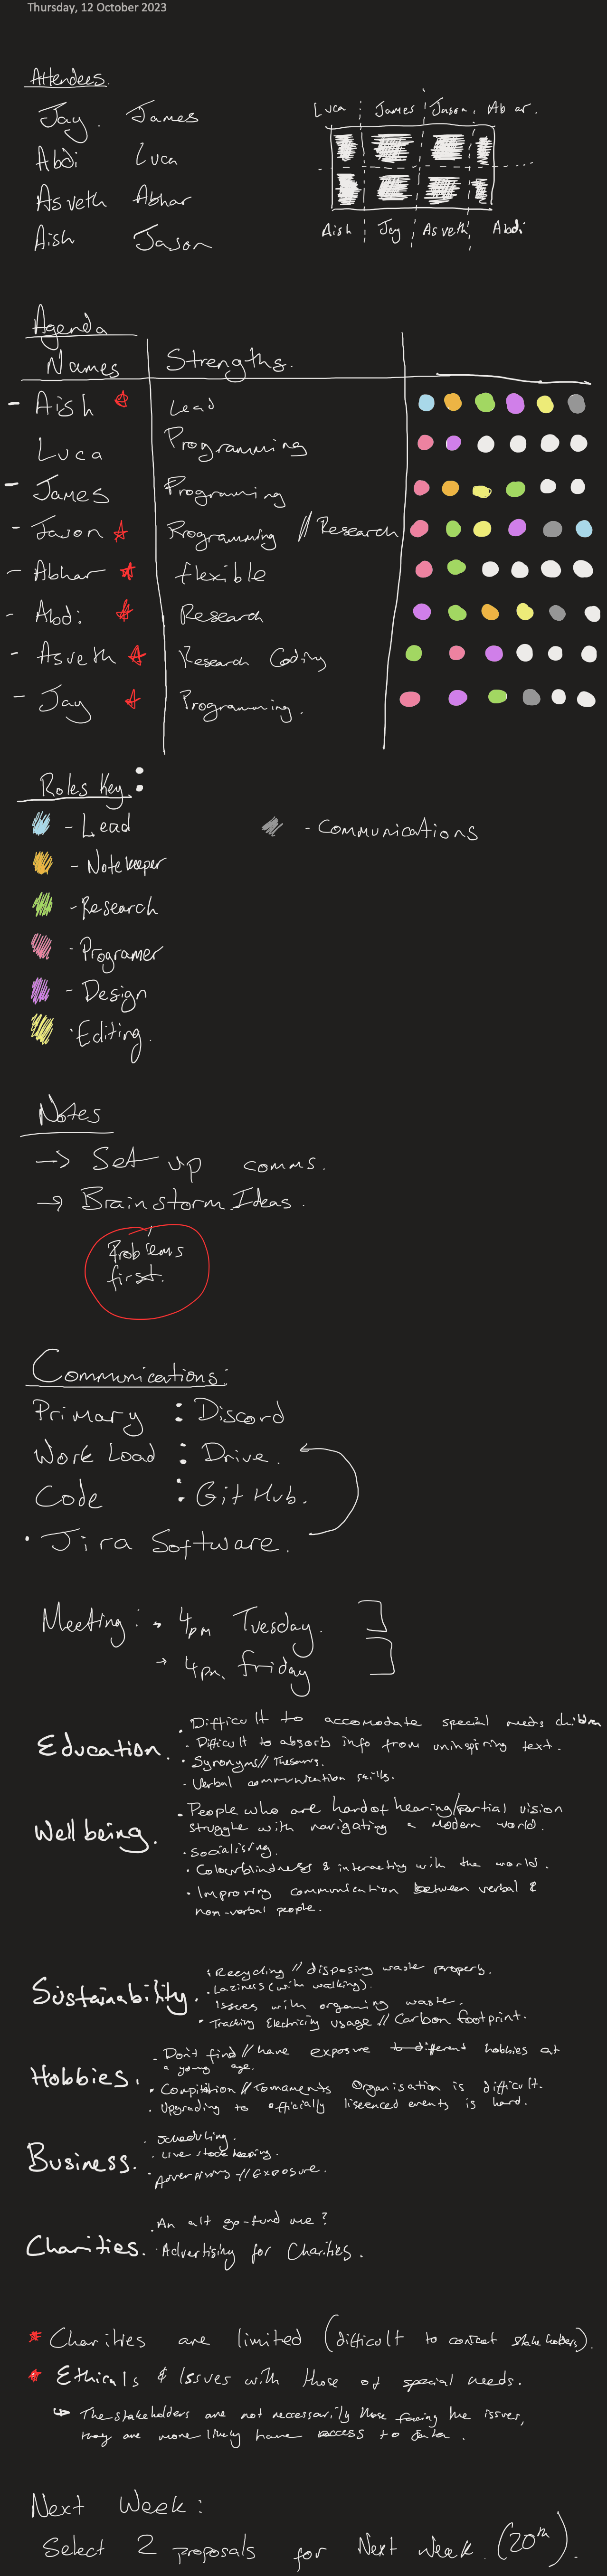 Thursday, 12 October 2023
Attendees.
Jay. James
Abdi Luca
Asveth Abhar
Aish Jason
Luca James Jason Ab ar.
Aish Jay Asveth Abdi
Agenda
Names Strengths.
- Aish Lead
Luca Programming
- James Programing
- Jason Programming // Research
- Abhar flexible
- Abdi Research
- Asveth Research Coding
- Jay Programming.
Roles Key:
- Lead
- Communications
- Notekeeper
- Research
- Programer
- Design
· Editing.
Notes
→ Set up comms.
→ Brainstorm Ideas.
Problems
first.
Communications:
Primary : Discord
Work Load : Drive.
Code : GitHub.
· Jira Software.
Meeting: → 4pm Tuesday.
→ 4pm. friday
Education.
· Difficult to accomodate special needs children
· Difficult to absorb info from uninspiring text.
· Synonyms // Thesaurus.
· Verbal communication skills.
Well being.
· People who are hard of hearing/partial vision
struggle with navigating a modern world.
· Socialising.
· Colourblindness & interacting with the world.
· Improving communication between verbal &
non-verbal people.
Sustainability.
· Recycling // disposing waste properly.
· Laziness (with walking).
Issues with organing waste.
· Tracking Electricity usage // Carbon footprint.
Hobbies.
- Don't find // have exposure to different hobbies at
a young age.
· Compitition // Tornaments Organisation is difficult.
· Upgrading to officially liseenced events is hard.
Business.
· Scheduling.
· Live stock keeping.
· Advertising // Exposure.
Charities.
· An alt go-fund me?
· Advertising for Charities.
* Charities are limited (difficult to contact stakeholders).
* Ethicals & Issues with those of special needs.
↳ The stakeholders are not necessarily those facing the issues,
they are more likely have access to data.
Next Week:
Select 2 proposals for Next week. (20th).